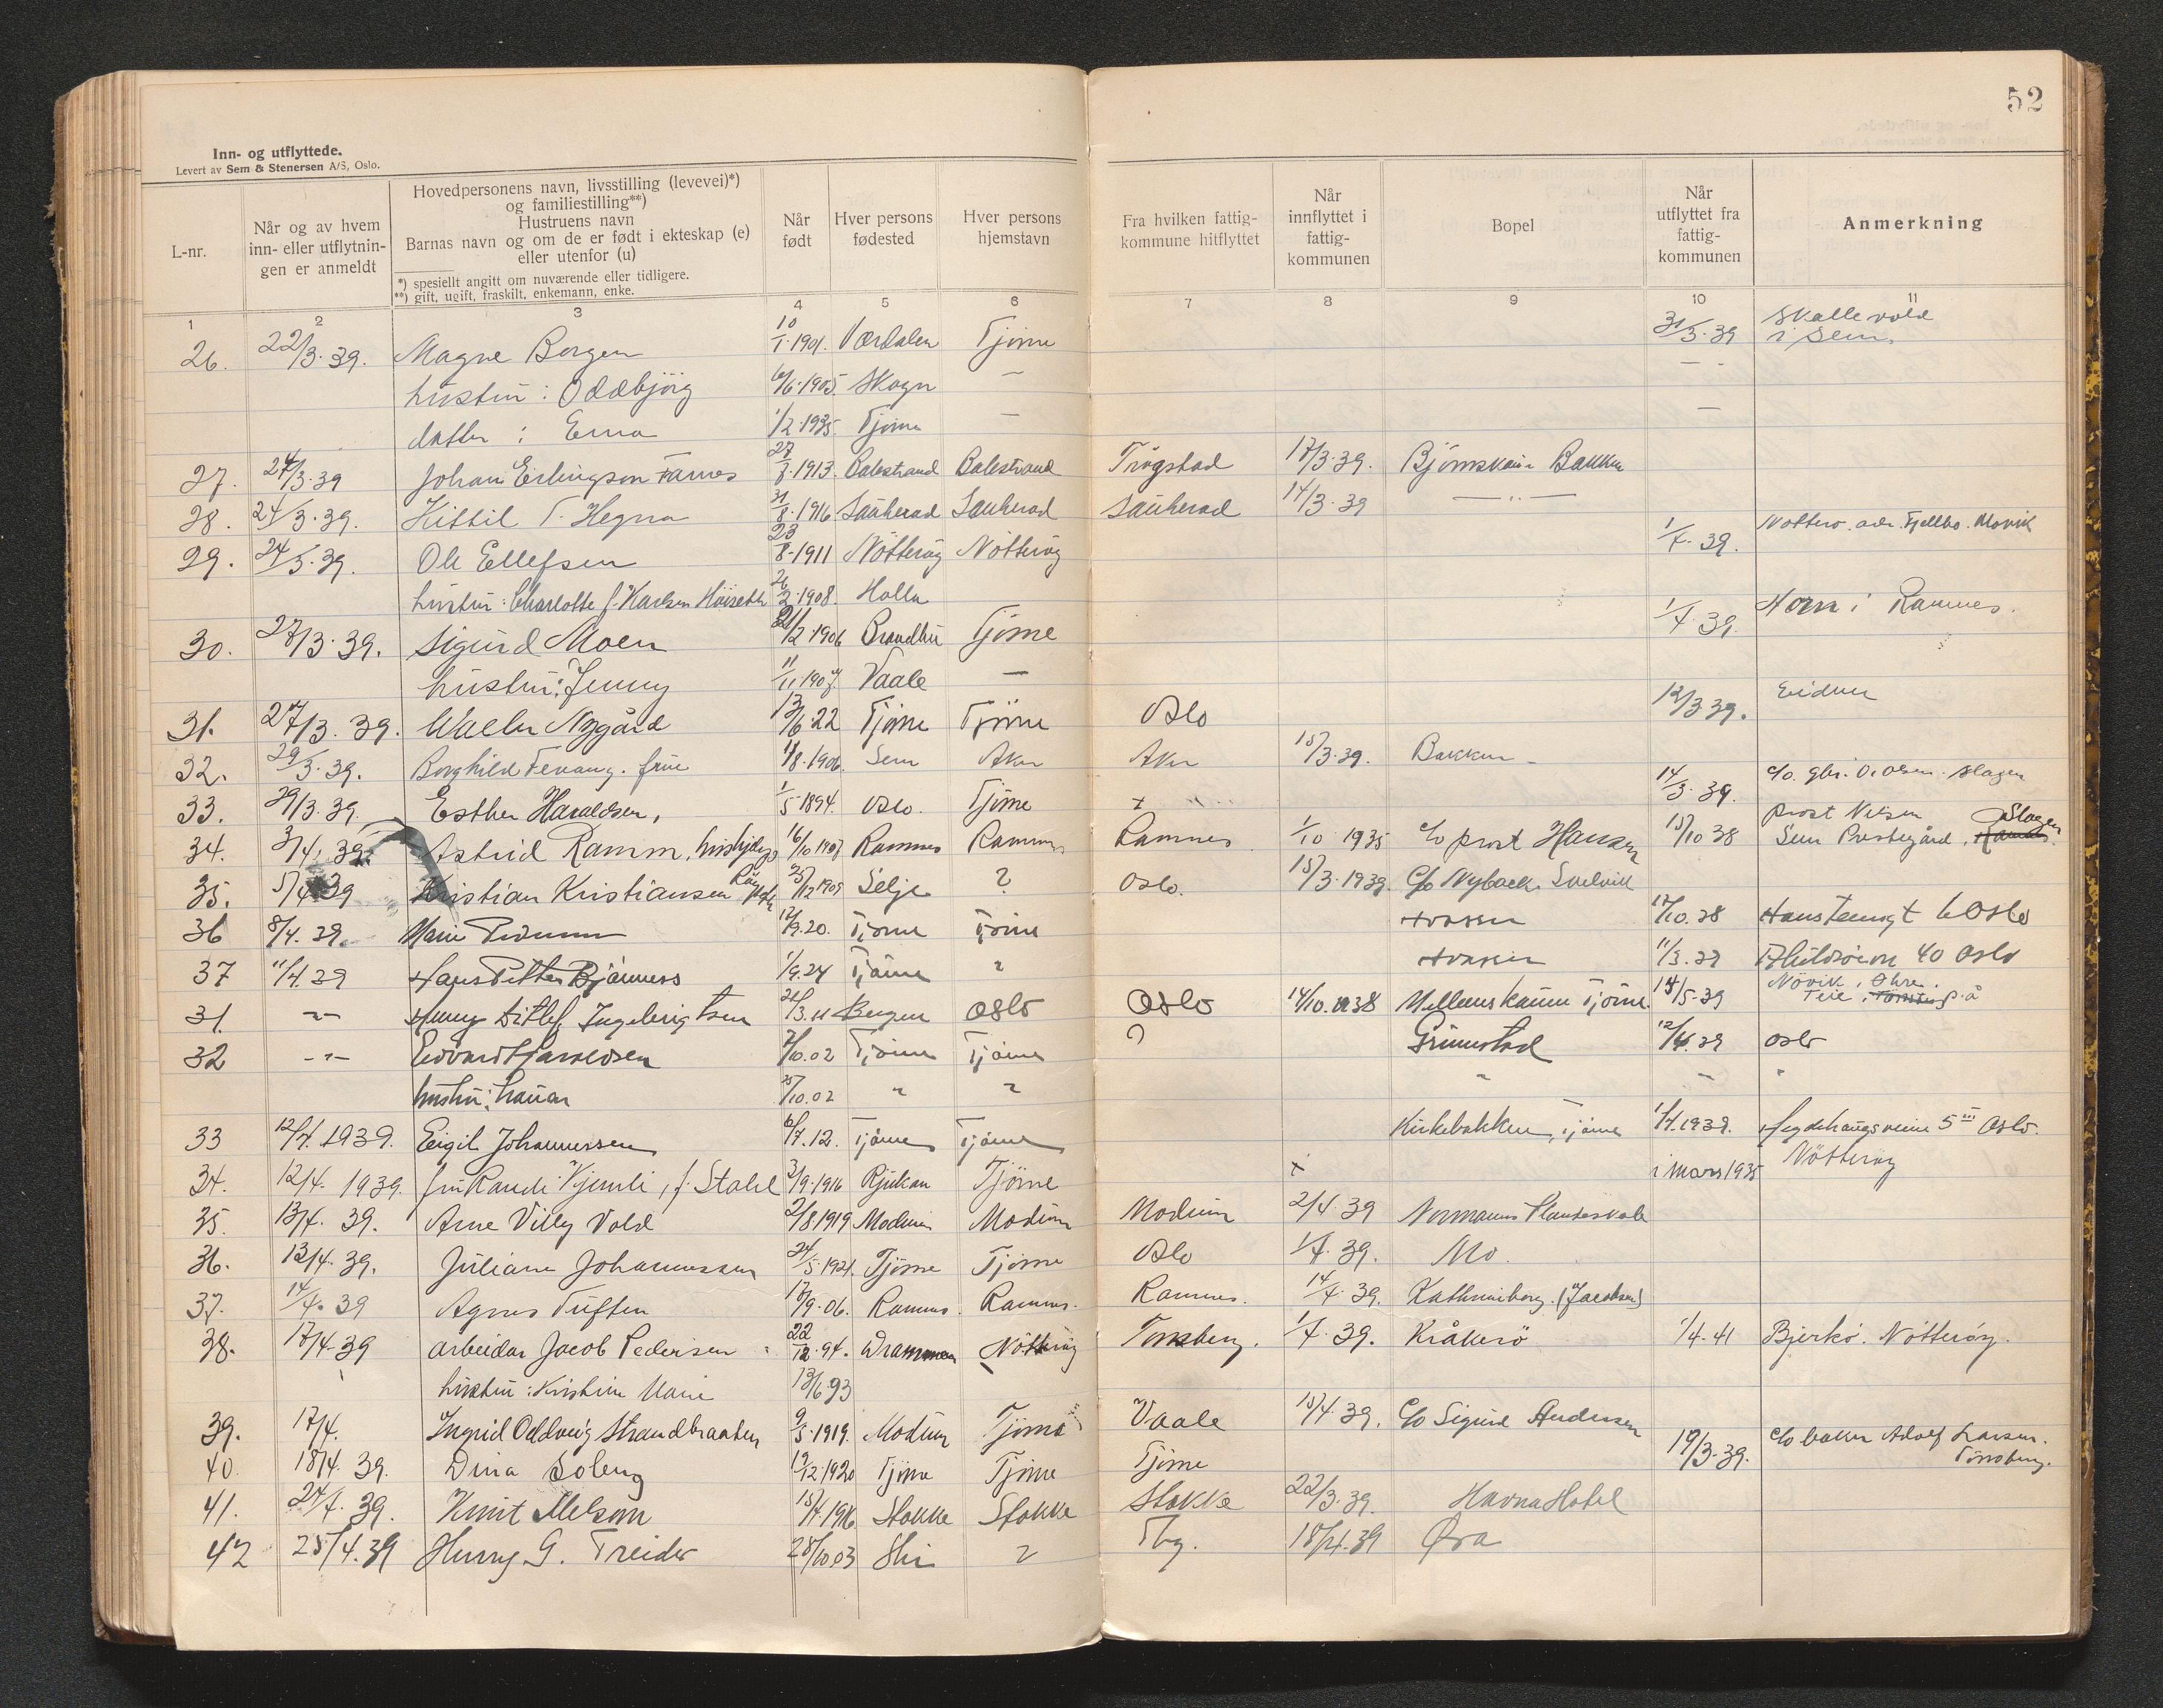 52
Inn- og utflyttede.
Levert av Sem & Stenersen A/S, Oslo.
L-nr.
Når og av hvem inn- eller utflytnin- gen er anmeldt
Hovedpersonens navn, livsstilling (levevei)*)
og familiestilling**)
Hustruens navn
Barnas navn og om de er født i ekteskap (e)
eller utenfor (u)
*) spesiellt angitt om nuværende eller tidligere.
**) gift, ugift, fraskilt, enkemann, enke.
Når født
Hver persons fødested
Hver persons hjemstavn
Fra hvilken fattig- kommune hitflyttet
Når innflyttet i fattig- kommunen
Bopel
Når utflyttet fra fattig- kommunen
Anmerkning
1 2 3 4 5 6 7 8 9 10 11
26. 22/3.39. Magne Borgen 10/1.1901. Værdalen Tjöme 31/3.39 Skallevold i Sem.
hustru: Oddbjörg 6/6.1905. Skogn — — -
datter: Erna 1/2.1935. Tjöme — —
27. 24/3.39 Johan Erlingson Farnes 1913. Balestrand Balestrand Trögstad 17/3.39. Bakken
28. 24/3.39. Kittil T. Hegna 31/8.1916 Sauherad Sauherad Sauherad 14/3.39 — " —
29. 24/3.39. Ole Ellefsen 23/8-1911 Nötteröy Nötteröy 1/4.39. Nötterö. adr. Fjellbo.
hustru: Charlotte f. Karlsen 26/2.1908. Holla
30. 27/3.39. Sigurd Moen 1906 Brandbu Tjöme 1/4.39. i Ramnes.
hustru: Jenny Vaale —
31. 27/3.39. Nygård 13/6.22 Tjöme Tjöme Oslo 12/3.39. Eidene
32. 29/3.39. Borghild Tevang. frue 1/8.1906. Sem Aker Aker 15/3.39. Bakken
33. 29/3.39. Esther Haraldsen, 1/5 1894. Oslo. Tjöme + 14/3.39. c/o. O. Olsen. Slagen
34. 3/4.39. Astrid Ramm, 16/10 1907 Ramnes Ramnes Ramnes 1/10 1935 c/o prost Hansen 15/10 38 prost Nilsen Sem Prestegård, Slagen
35. 5/4 39 Kristian Kristiansen 25/12 1909 Selje ? Oslo. 15/3.1939. c/o Nyback. Svelvik
36 8/4.39. Marie 12/9.20. Tjöme Tjöme Hvasser 17/10.38 Oslo
37 11/4.39 Hans Petter Bjärness 1/9.24 Tjöme " Hvasser 11/3.39 40 Oslo
31. -"- Ditlef Ingebrigtsen Bergen Oslo Oslo 14/10.1938 Tjöme 14/5-39 Teie
32 -"- Edvard Haraldsen 7/10.02 Tjöme Tjöme ? Grimestad 12/4.39 Oslo
hustru: 25/10.02 " " " " "
33 12/4.1939. Eigil Johannessen 6/7.12. Tjöme Tjöme Kirkebakken, Tjöme 1/4.1939. 5 III Oslo.
34. 12/4. 1939. fru Randi Kjemli, f. Stahl 3/9.1916 Rjukan Tjöme + i mars 1935 Nötteröy
35. 13/4. 39. Arne Villy Vold 2/8.1919 Modum Modum Modum 2/4.39 Normanns Planteskole
36. 13/4.39. Juliane Johannessen 24/5.1921. Tjöme Tjöme Oslo 1/4.39. Mo.
37. 14/4.39 Agnes Tuften 13/9.06. Ramnes. Ramnes. Ramnes. 14/4.39. (Jacobsen)
38. 17/4-39 arbeider Jacob Pedersen 22/12.94. Drammen Nötteröy Tönsberg. 1/4.39. Kråkerö 1/4-41 Bjerkö. Nötteröy.
hustru: Kristine Marie 13/6.93
39. 17/4. Ingrid Oddveig Strandbraaten 9/5.1919. Modum Tjöme Vaale 15/4.39. c/o Sigurd Andersen
40. 18/4.39. Dina Soleng 19/12.1920 Tjöme Tjöme Tjöme 19/3.39. c/o baker Adolf Larsen. Tönsberg.
41. 24/4.39. Knut Melsom 15/4.1916 Stokke Stokke Stokke 22/3.39. Havna Hotel
42 25/4.39 G. Treider 28/10.03 Ski " Tbg. 18/4.39 Øra